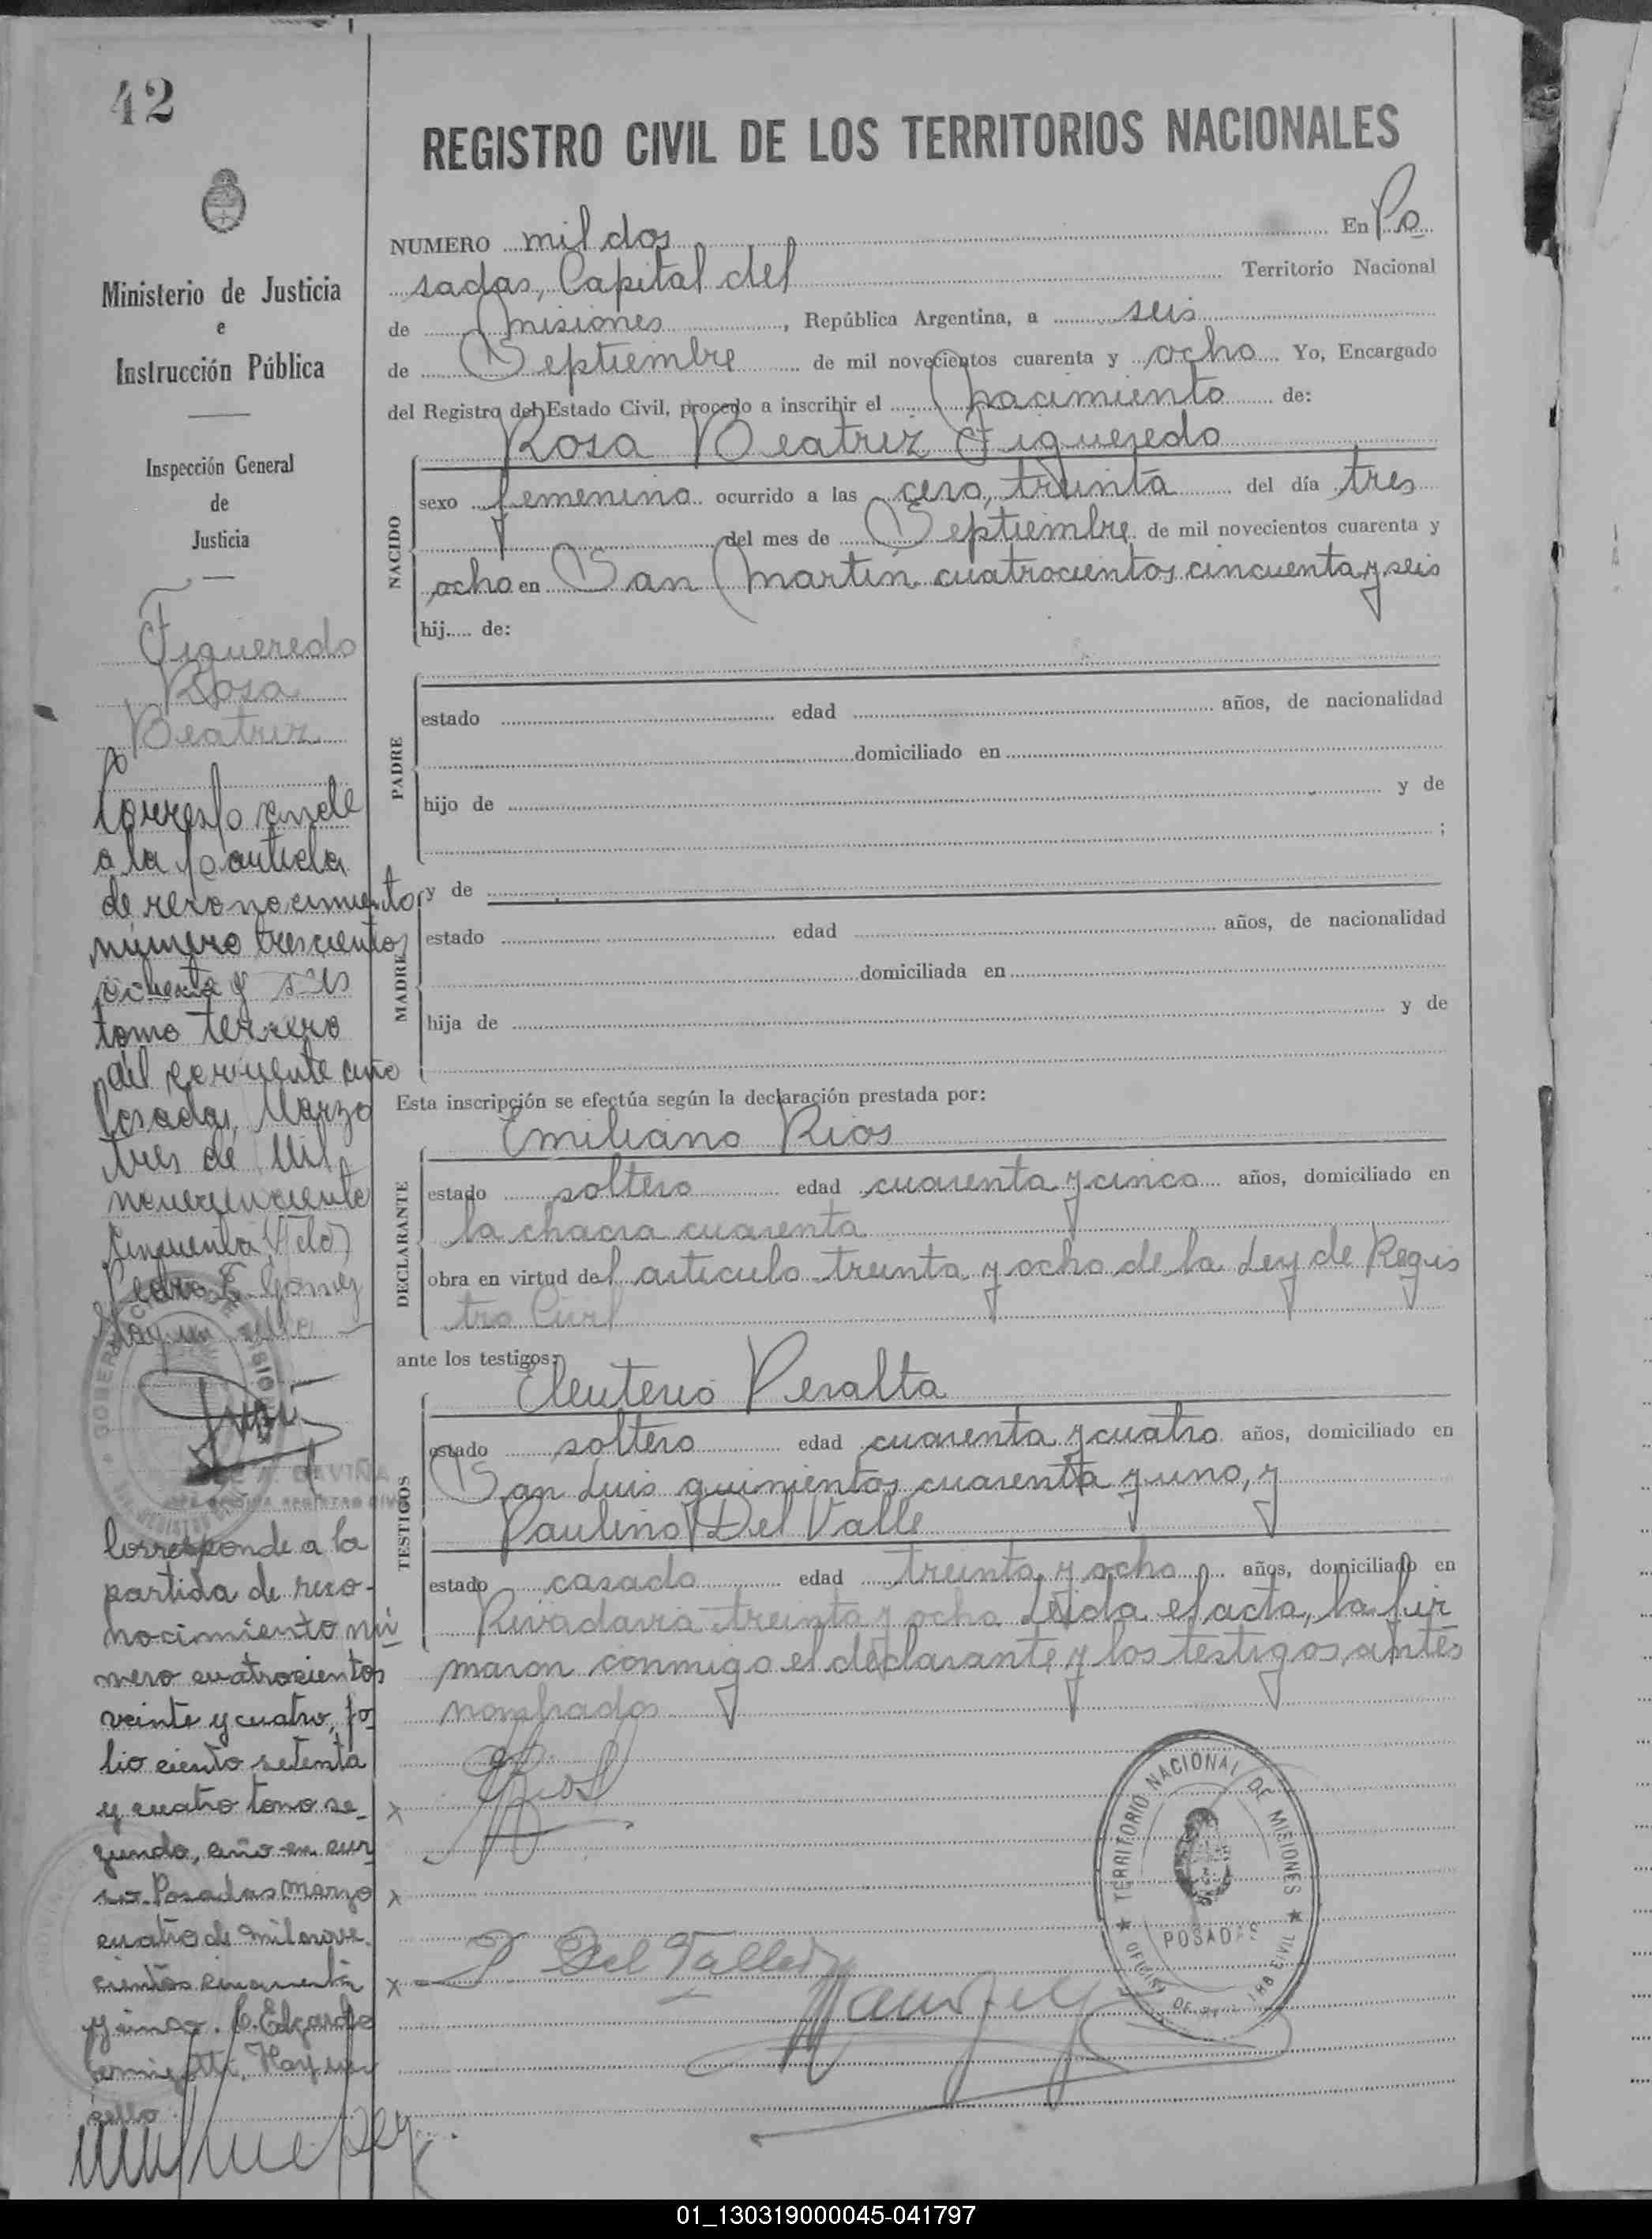 42
Ministerio de Justicia
e
Instrucción Pública
Inspección General
de
Justicia
Figueredo
Rosa
Beatriz
Corresponde
a la partida
de reconocimiento
número trescientos
ochenta y seis
tomo tercero
del corriente año
Posadas, Marzo
tres de Mil
novecientos
cincuenta (fdo)
Pedro E. Gomez
Hay un sello
Corresponde a la
partida de reco-
nocimiento nú
mero cuatrocientos
veinte y cuatro, fo
lio ciento setenta
y cuatro tomo se-
gundo, año en cur
so. Posadas Marzo
cuatro de mil nove-
cientos cincuenta
y cinco. C. Edgardo
Hay un
sello
REGISTRO CIVIL DE LOS TERRITORIOS NACIONALES
NUMERO mil dos En Po
sadas, Capital del Territorio Nacional
de Misiones, República Argentina, a seis
de Septiembre de mil novecientos cuarenta y ocho Yo, Encargado
del Registro del Estado Civil, procedo a inscribir el nacimiento de:
Rosa Beatriz Figueredo
NACIDO
sexo femenino ocurrido a las cero, treinta del día tres
del mes de Septiembre de mil novecientos cuarenta y
ocho en San Martín cuatrocientos cincuenta y seis
hij.... de:
PADRE
estado edad años, de nacionalidad
domiciliado en
hijo de y de
;
y de
MADRE
estado edad años, de nacionalidad
domiciliada en
hija de y de
Esta inscripción se efectúa según la declaración prestada por:
Emiliano Rios
DECLARANTE
estado soltero edad cuarenta y cinco años, domiciliado en
la chacra cuarenta
obra en virtud del articulo treinta y ocho de la Ley de Regis
tro Civil
ante los testigos:
Eleuterio Peralta
TESTIGOS
estado soltero edad cuarenta y cuatro años, domiciliado en
San Luis quinientos cuarenta y uno, y
Paulino Del Valle
estado casado edad treinta y ocho años, domiciliado en
Rivadavia treinta y ocho Leida el acta, la fir
maron conmigo el declarante y los testigos, antes
nombrados
x
x
x P. Del Valle
TERRITORIO NACIONAL DE MISIONES
POSADAS
01_130319000045-041797